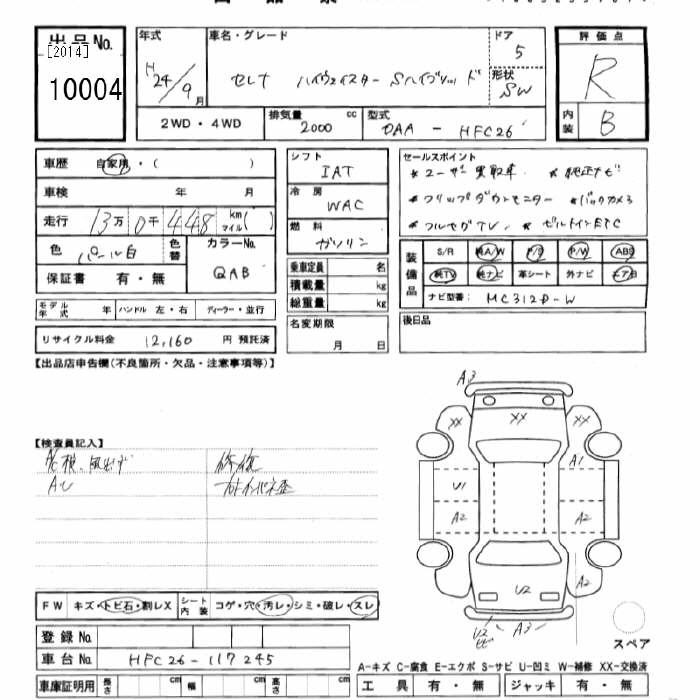 出品No.
[2014]
10004
年式
H24/9月
車名・グレード
セレナ ハイウェイスター Sハイブリッド
ドア
5
形状
SW
評価点
R
内装
B
2WD・4WD
排気量
2000 cc
型式
DAA - HFC26
車歴 自家用・( )
車検 年 月
走行 13万0千448 km マイル( )
色 パール白 色替
カラーNo.
QAB
保証書 有・無
モデル年式 年 ハンドル 左・右 ディーラー・並行
リサイクル料金 12,160 円 預託済
シフト
IAT
冷房
WAC
燃料
ガソリン
乗車定員 名
積載量 kg
総重量 kg
名変期限
月 日
セールスポイント
*ユーザー買取車 *純正ナビ
*フリップダウンモニター *バックカメラ
*フルセグTV *ビルトインETC
装備品
S/R 純A/W P/S P/W ABS
純TV 純ナビ 革シート 外ナビ エアB
ナビ型番: MC312D-W
後日品
【出品店申告欄(不良箇所・欠品・注意事項等)】
【検査員記入】
修復
AU
A3
XX XX XX
A1
U1
A2 A2
A2
U2
U2 A3
スペア
FW キズ・トビ石・割レX シート内装 コゲ・穴・汚レ・シミ・破レ・スレ
登録No.
車台No. HFC26-117245
車庫証明用 長さ cm 幅 cm 高さ cm
A-キズ C-腐食 E-エクボ S-サビ U-凹ミ W-補修 XX-交換済
工具 有・無 ジャッキ 有・無